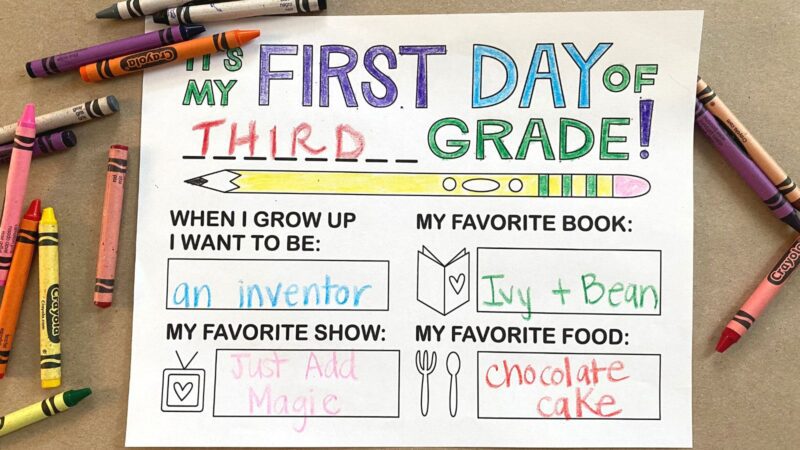 IT'S
MY FIRST DAY OF
THIRD GRADE!
WHEN I GROW UP
I WANT TO BE:
an inventor
MY FAVORITE BOOK:
Ivy + Bean
MY FAVORITE SHOW:
Just Add
Magic
MY FAVORITE FOOD:
chocolate
cake
Crayola
Crayola
Crayola
Crayola